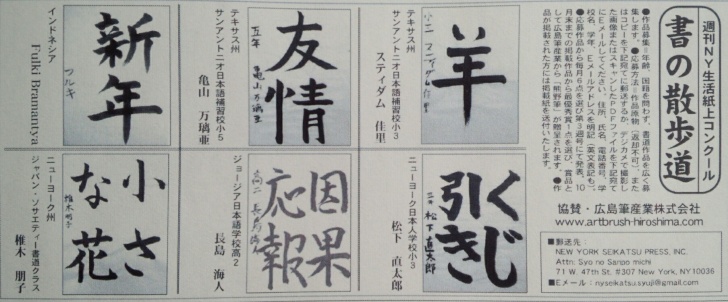 週刊NY生活紙上コンクール
書の散歩道
●作品募集=年齢、国籍を問わず、書道作品を広く募
集します。●応募方法=作品原物(返却不可)、また
はコピーを下記宛てに郵送するか、デジカメで撮影し
た画像またはスキャンしたPDFファイルを下記宛て
にEメールしてください。住所、氏名、電話番号、学
校名、学年、Eメールアドレスを明記(英文表記も)。
●応募作品から毎月6点を選び第3週号にて発表。10
月末までの掲載作品から最優秀賞1点を選び、賞品と
して広島筆産業から「熊野筆」が贈呈されます。●作
品が掲載された方には掲載紙を送付いたします。
協賛・広島筆産業株式会社
www.artbrush-hiroshima.com
■郵送先:
NEW YORK SEIKATSU PRESS, INC.
Attn: Syo no Sanpo michi
71 W. 47th St. #307 New York, NY10036
■Eメール:nyseikatsu.syuji@gmail.com
羊
テキサス州
サンアントニオ日本語補習校小3
スティダム 佳里
友情
五年 亀山万璃亜
テキサス州
サンアントニオ日本語補習校小5
亀山 万璃亜
新年
フルキ
インドネシア
Fulki Bramantya
くじ
引き
小三 松下直太郎
ニューヨーク日本人学校小3
松下 直太郎
因果
応報
高二 長島海人
ジョージア日本語学校高2
長島 海人
小さ
な花
椎木朋子
ニューヨーク州
ジャパン・ソサエティー書道クラス
椎木 朋子